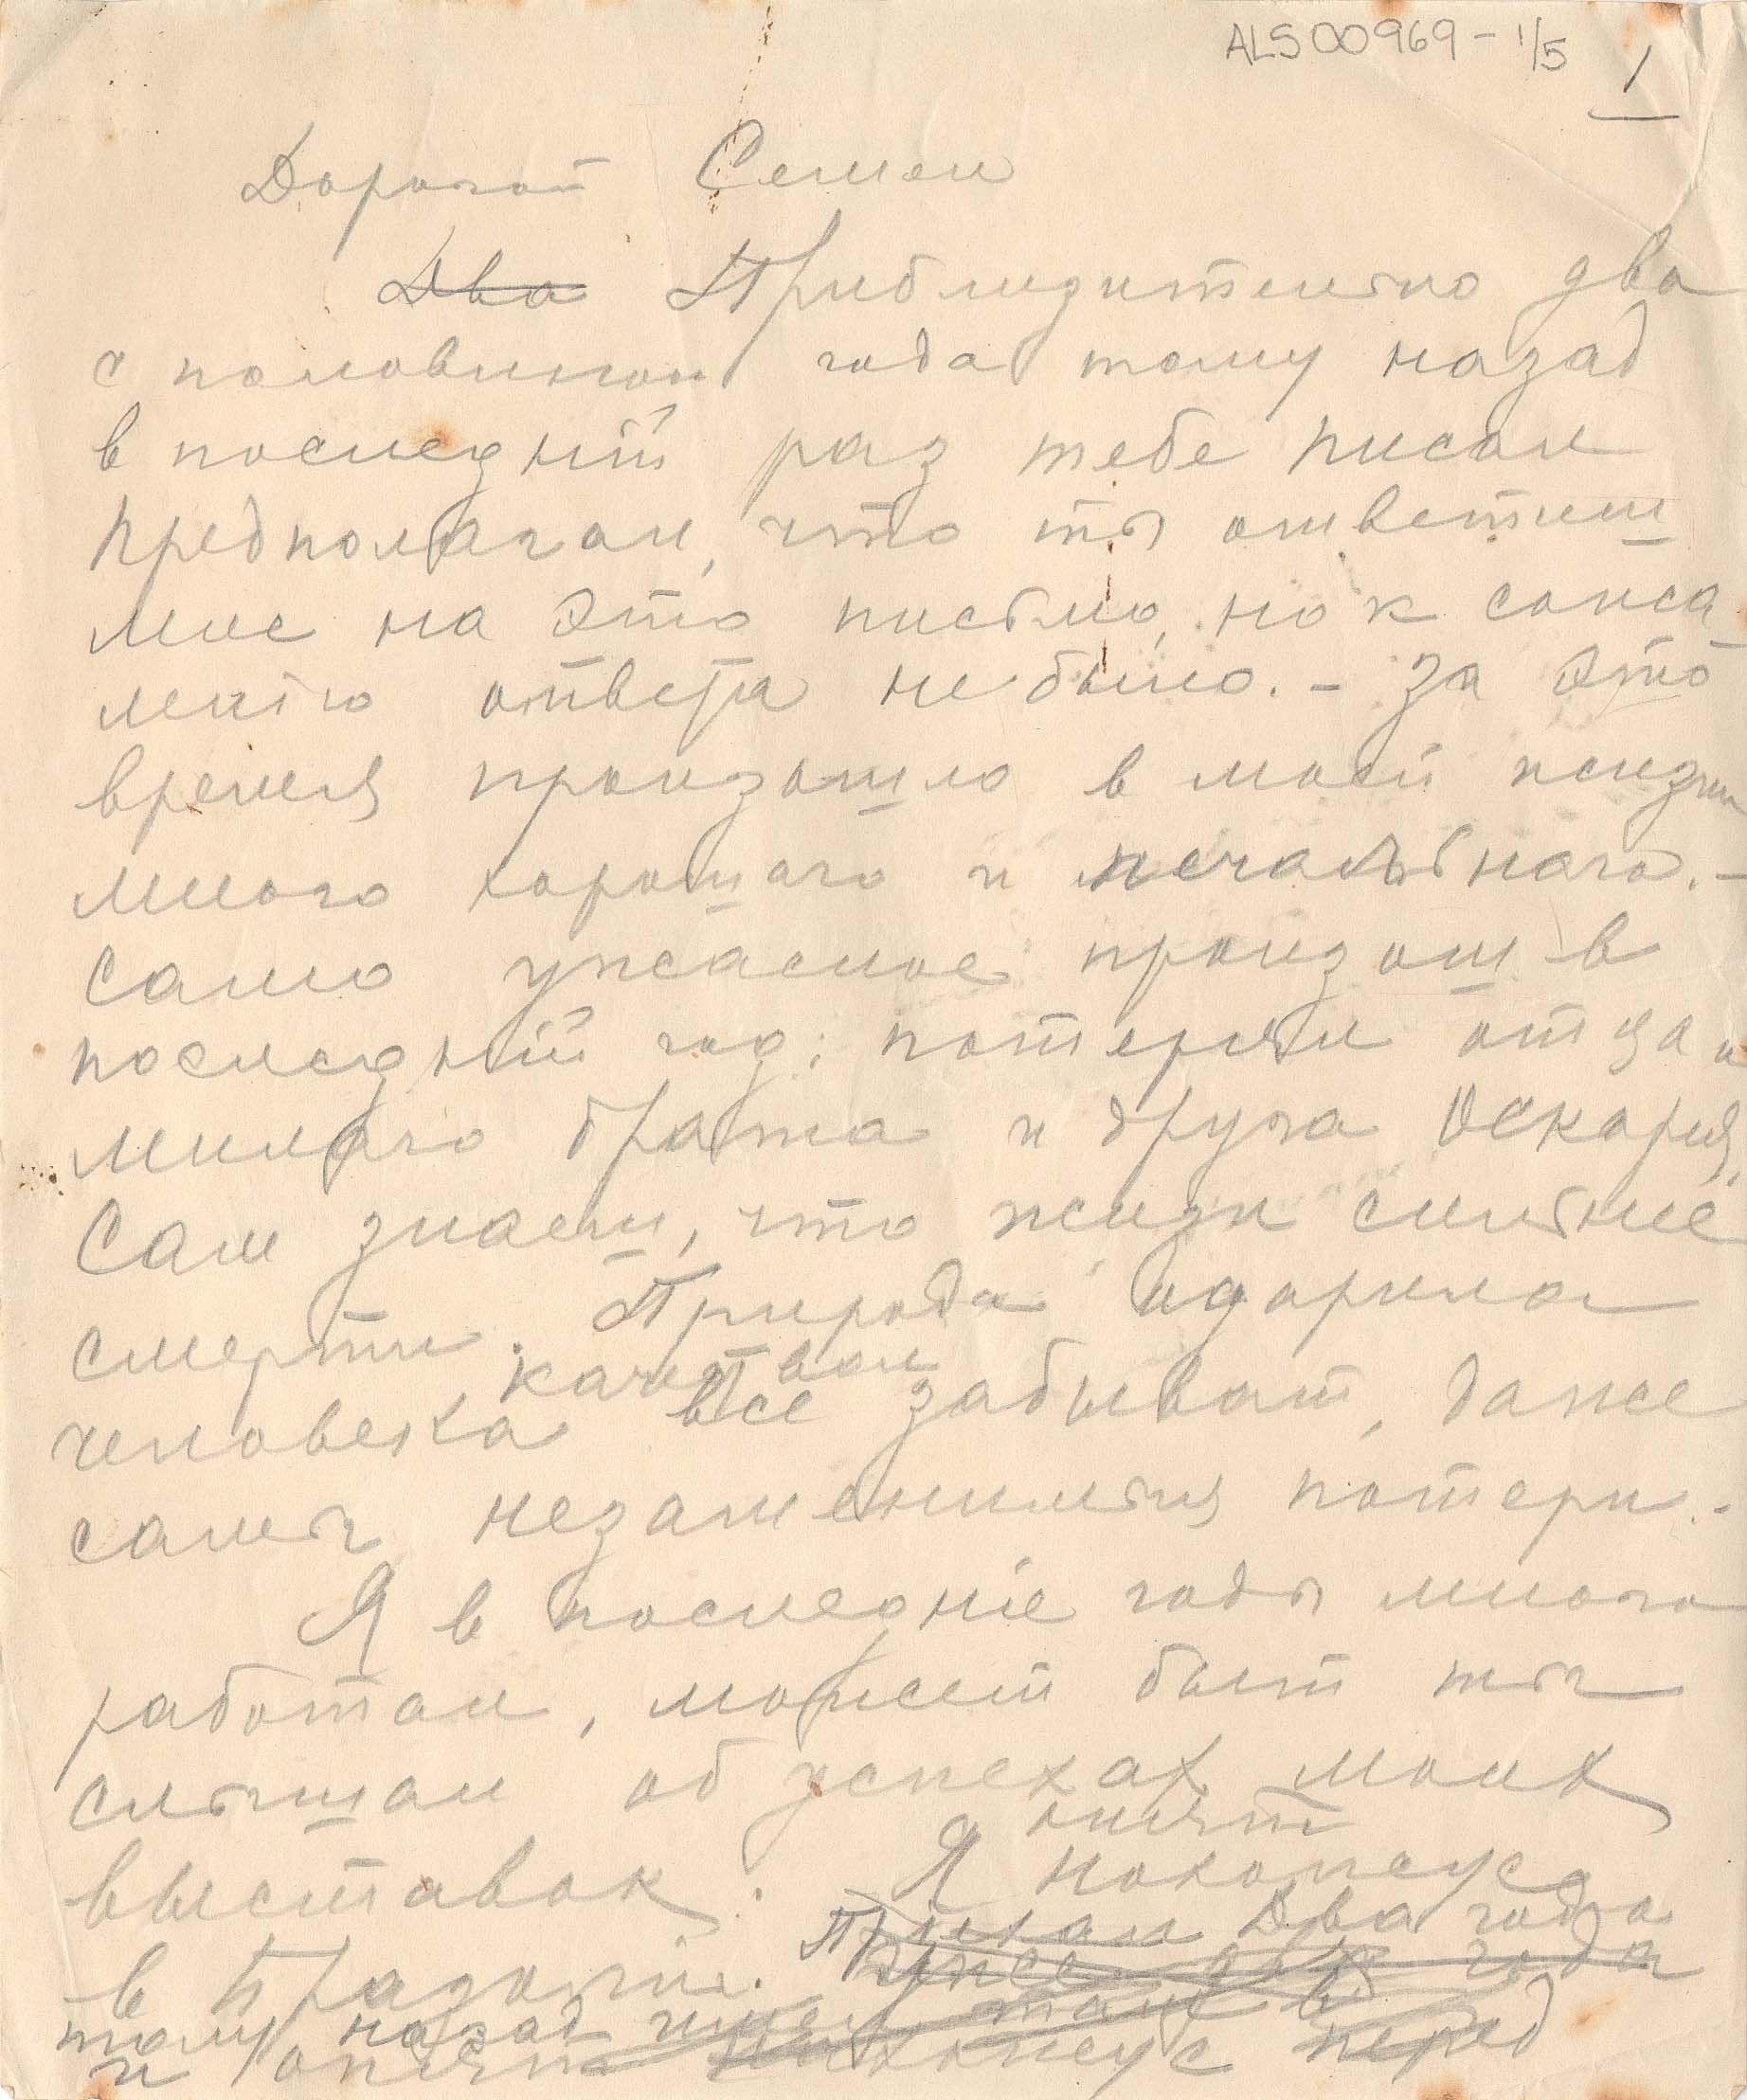 ALS 00969 - 1/5
1
Дорогой Семен
Два Приблизительно два
с половиной года тому назад
в последній раз тебе писал
предполагал, что ты ответиш
мне на это письмо, но к сожа-
ленію ответа не было. - За это
время произошло в моей жизни
много хорошаго и печальнаго. -
Само ужасное произош в
последній год: потерял отца и
милаго брата и друга Оскара,
Сам знаеш, что жизн сильнее
смерти. Природа одарила
человека качеством
все забыват, даже
самыя незаменимыя потери. -
Я в последніе годы много
работал, может быт ты
слышал об успехах моих
выставок. Я опят
нахожус
в Бразиліи. Пріехал два года
Уже два года
тому назад
и опят нахожус перед